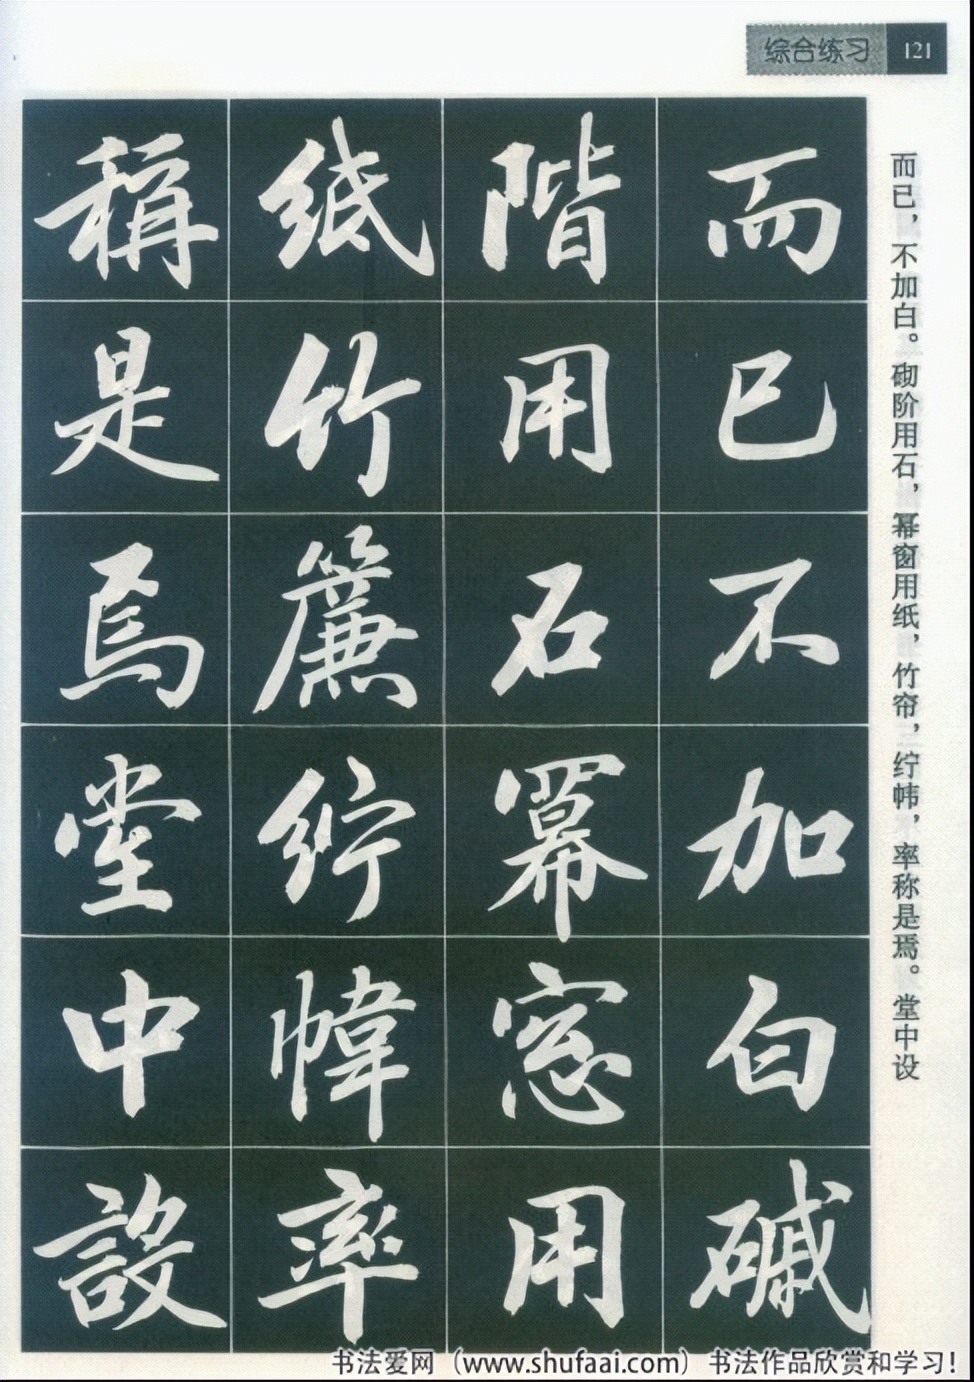 综合练习 121
而已，不加白。砌阶用石，幂窗用纸，竹帘，纻帏，率称是焉。堂中设
而已不加白磩
階用石冪窓用
紙竹簾紵幃率
稱是焉堂中設
书法爱网（www.shufaai.com）书法作品欣赏和学习！